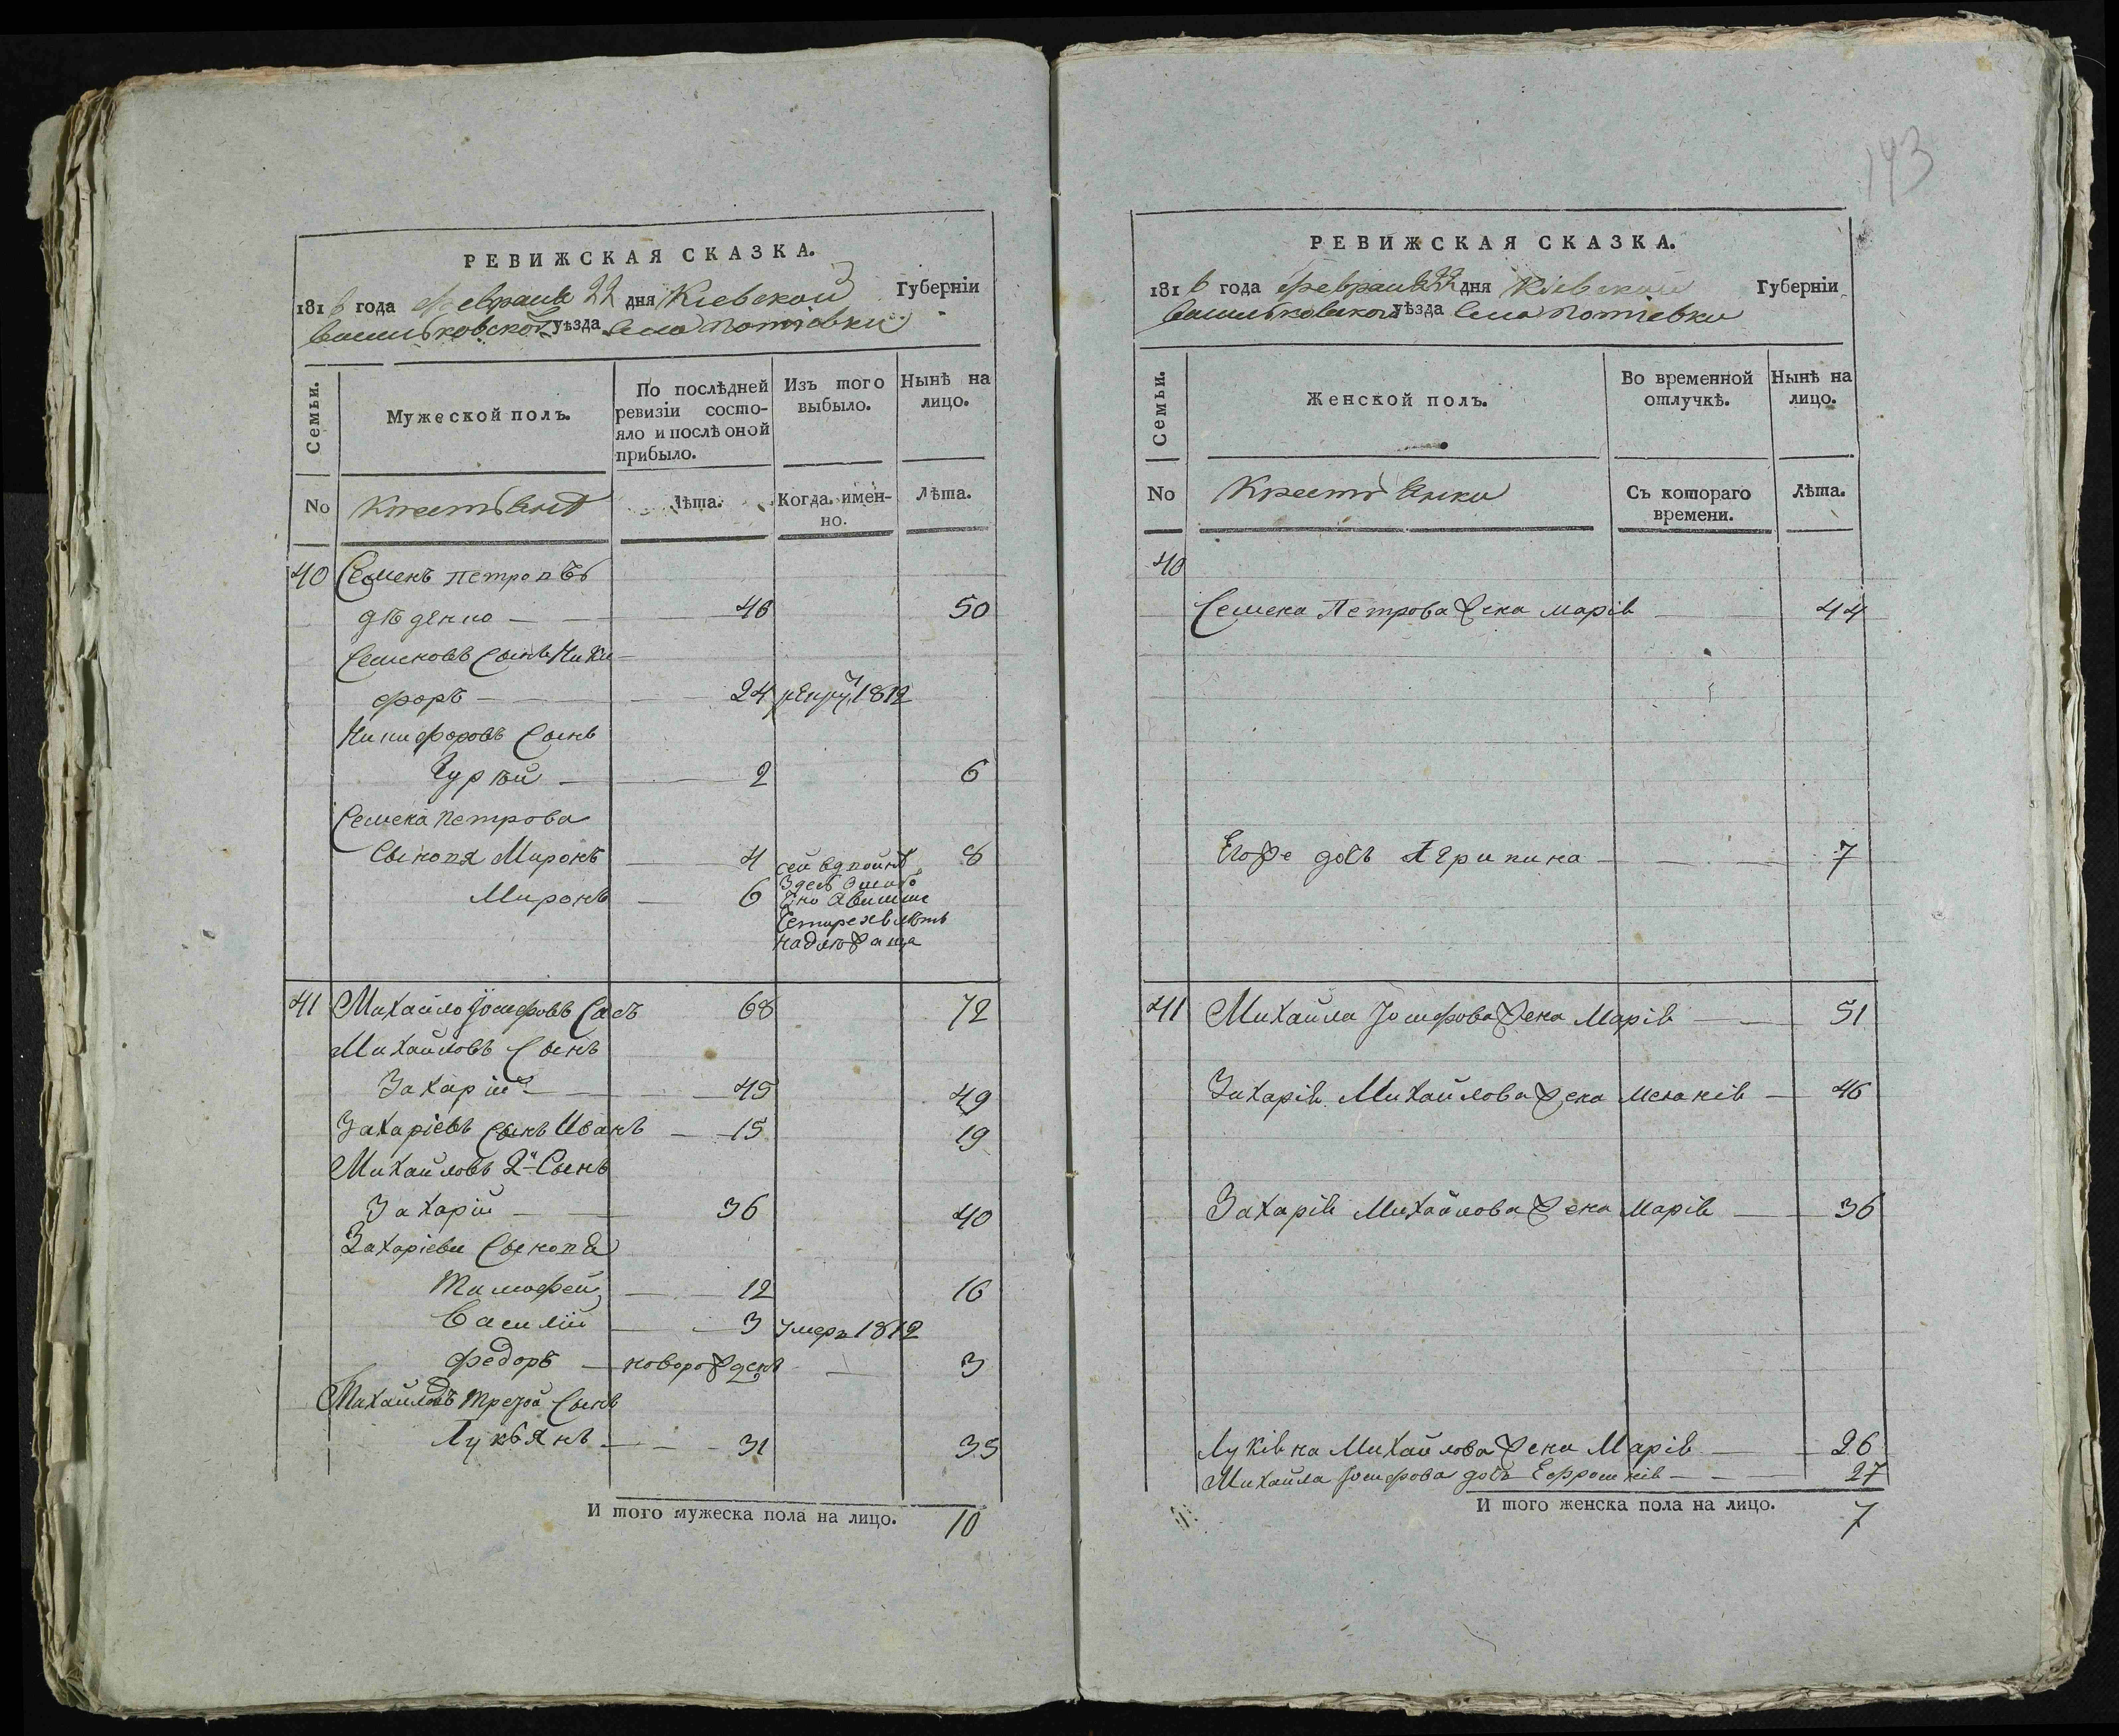 143
РЕВИЖСКАЯ СКАЗКА.
1816 года февраля 22 дня Кіевской Губерніи
Васильковской уѣзда Села Потіевки
Семьи.
Мужеской полъ.
По послѣдней ревизіи состояло и послѣ оной прибыло.
Изъ того выбыло.
Нынѣ на лицо.
No
Лѣта.
Когда имен-
но.
Лѣта.
40 Семенъ Петровъ
46 50
Семеновъ Сынъ Ники-
форъ 24 1812
Никифоровъ Сынъ
Гурѣй 2 6
Семена Петрова
Миронъ 4 8
Миронъ 6
41 Михайло Іосифовъ 68 72
Михайловъ Сынъ
Захарій 45 49
Захаріевъ Сынъ Иванъ 15 19
Михайловъ 2й Сынъ
Захарій 36 40
Захаріеви
Тимофей 12 16
Василій 3 умеръ 1812
Федоръ новорожденъ 3
Михайловъ Третой Сынъ
Лукьянъ 31 35
И того мужеска пола на лицо. 10
РЕВИЖСКАЯ СКАЗКА.
1816 года февраля 22 дня Кіевской Губерніи
Васильковской уѣзда Села Потіевки
Семьи.
Женской полъ.
Во временной отлучкѣ.
Нынѣ на лицо.
No
Крестьянки
Съ котораго
времени.
Лѣта.
40
Семена Петрова жена марія 44
Егоже дочь Агрипина 7
41 Михайла Іосифова жена Марія 51
Захарія Михайлова жена меланія 46
Захарія Михайлова жена Марія 36
Лукіяна Михайлова жена Марія 26
Михайла Іосифова дочь Ефросинія 27
И того женска пола на лицо. 7